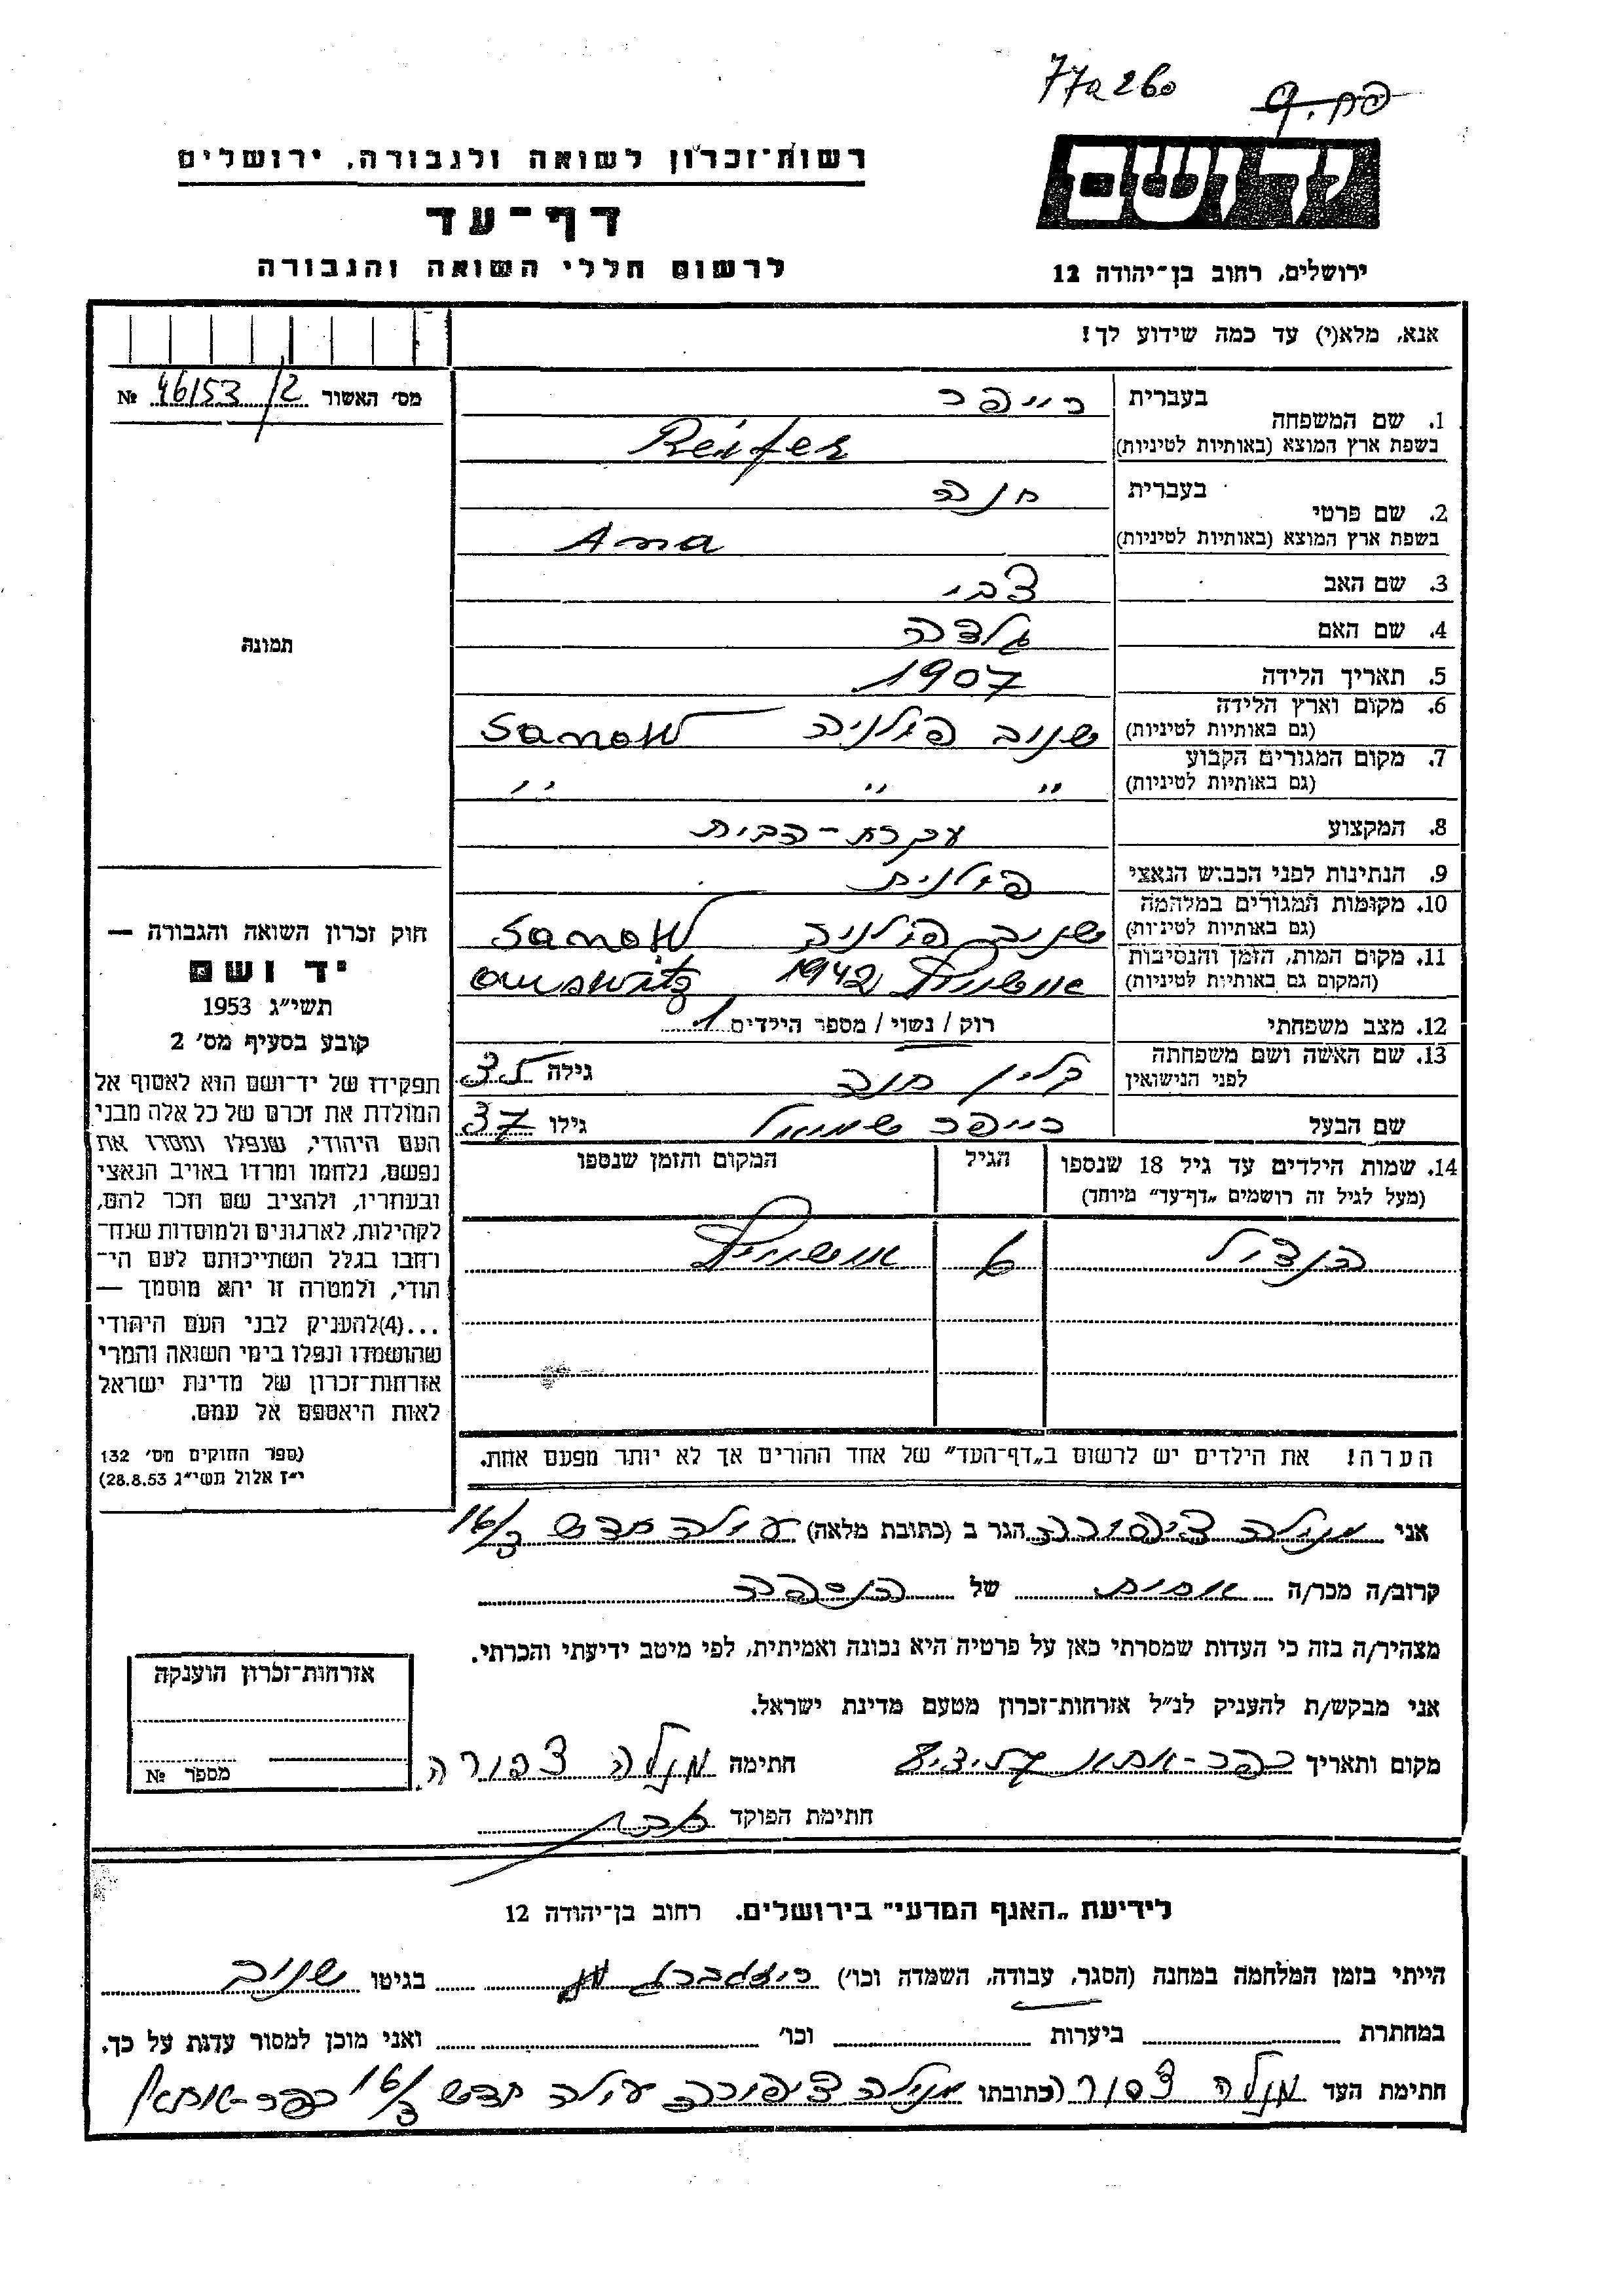 77a260
פח. 9
רשות־זכרון לשואה ולגבורה, ירושלים
ידושם
דף־עד
לרשום חללי השואה והגבורה
ירושלים, רחוב בן־יהודה 12
אנא, מלא(י) עד כמה שידוע לך!
מס׳ האשור 46153/2 №
1. שם המשפחה
בעברית רייפר
בשפת ארץ המוצא (באותיות לטיניות) Reifer
2. שם פרטי
בעברית חנה
בשפת ארץ המוצא (באותיות לטיניות) Ana
3. שם האב צבי
4. שם האם גולדה
5. תאריך הלידה 1907
6. מקום וארץ הלידה שנוב פולניה Sanow
(גם באותיות לטיניות)
7. מקום המגורים הקבוע
(גם באותיות לטיניות) " " "
8. המקצוע עקרת-הבית
9. הנתינות לפני הכבוש הנאצי פולנית
10. מקומות המגורים במלחמה
(גם באותיות לטיניות) שנוב פולניה Sanow
11. מקום המות, הזמן והנסיבות
(המקום גם באותיות לטיניות) אושוויץ 1942 auswitz
12. מצב משפחתי רוק / נשוי / מספר הילדים 1
13. שם האשה ושם משפחתה
לפני הנישואין קליין חנה גילה 35
שם הבעל רייפר שמואל גילו 37
14. שמות הילדים עד גיל 18 שנספו
(מעל לגיל זה רושמים „דף־עד” מיוחד)
הגיל
המקום והזמן שנספו
הנצול 6 אושוויץ
הערה! את הילדים יש לרשום ב„דף־העד” של אחד ההורים אך לא יותר מפעם אחת.
תמונה
חוק זכרון השואה והגבורה —
יד ושם
תשי״ג 1953
קובע בסעיף מס׳ 2
תפקידו של יד־ושם הוא לאסוף אל
המולדת את זכרם של כל אלה מבני
העם היהודי, שנפלו ומסרו את
נפשם, נלחמו ומרדו באויב הנאצי
ובעוזריו, ולהציב שם וזכר להם,
לקהילות, לארגונים ולמוסדות שנח־
רחבו בגלל השתייכותם לעם הי־
הודי, ולמטרה זו יהא מוסמך —
...(4)להעניק לבני העם היהודי
שהושמדו ונפלו בימי השואה והמרי
אזרחות־זכרון של מדינת ישראל
לאות היאספם אל עמם.
(ספר החוקים מס׳ 132
י״ז אלול תשי״ג 28.8.53)
אני מנולה ציפורה הגר ב (כתובת מלאה) עולה חדש 16/3
קרוב/ה מכר/ה אחות של הנספה
מצהיר/ה בזה כי העדות שמסרתי כאן על פרטיה היא נכונה ואמיתית, לפי מיטב ידיעתי והכרתי.
אני מבקש/ת להעניק לנ״ל אזרחות־זכרון מטעם מדינת ישראל.
מקום ותאריך כפר-אתא חתימה מנולה צפורה.
חתימת הפוקד
אזרחות־זכרון הוענקה
מספר №
לידיעת „האגף המדעי” בירושלים. רחוב בן־יהודה 12
הייתי בזמן המלחמה במחנה (הסגר, עבודה, השמדה וכו׳) בגיטו שנוב
במחתרת ביערות וכו׳ ואני מוכן למסור עדות על כך.
חתימת העד מנולה צפורה (כתובתו מנולה ציפורה עולה חדש 16/3 כפר-אתא)